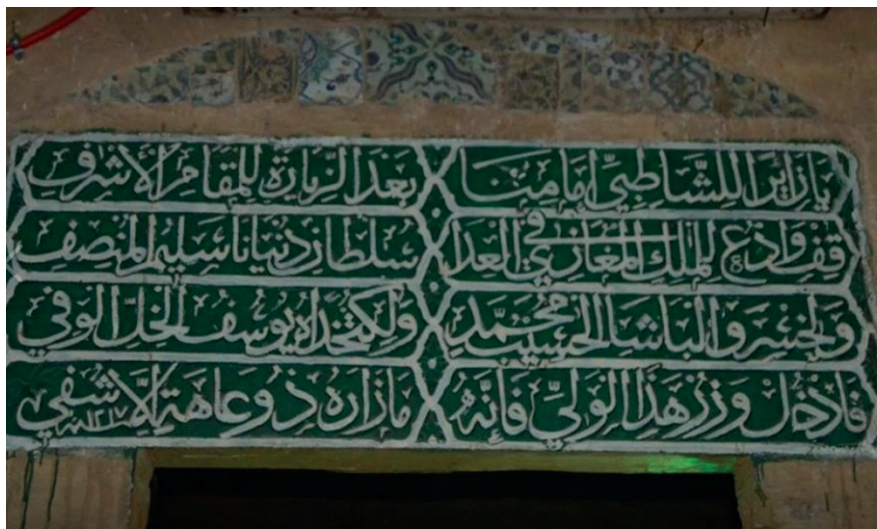 يا زايرا للشاطبي إمامنا بعد الزيارة للمقام الأشرف
قف وادع للملك المغازي في العدا سلطان دنيانا سليم المنصف
ولخسرو الباشا الحسيب محمد ولكتخداه يوسف الخل الوفي
فادخل وزر هذا الولي فإنه ما زاره ذو عاهة إلا شفي